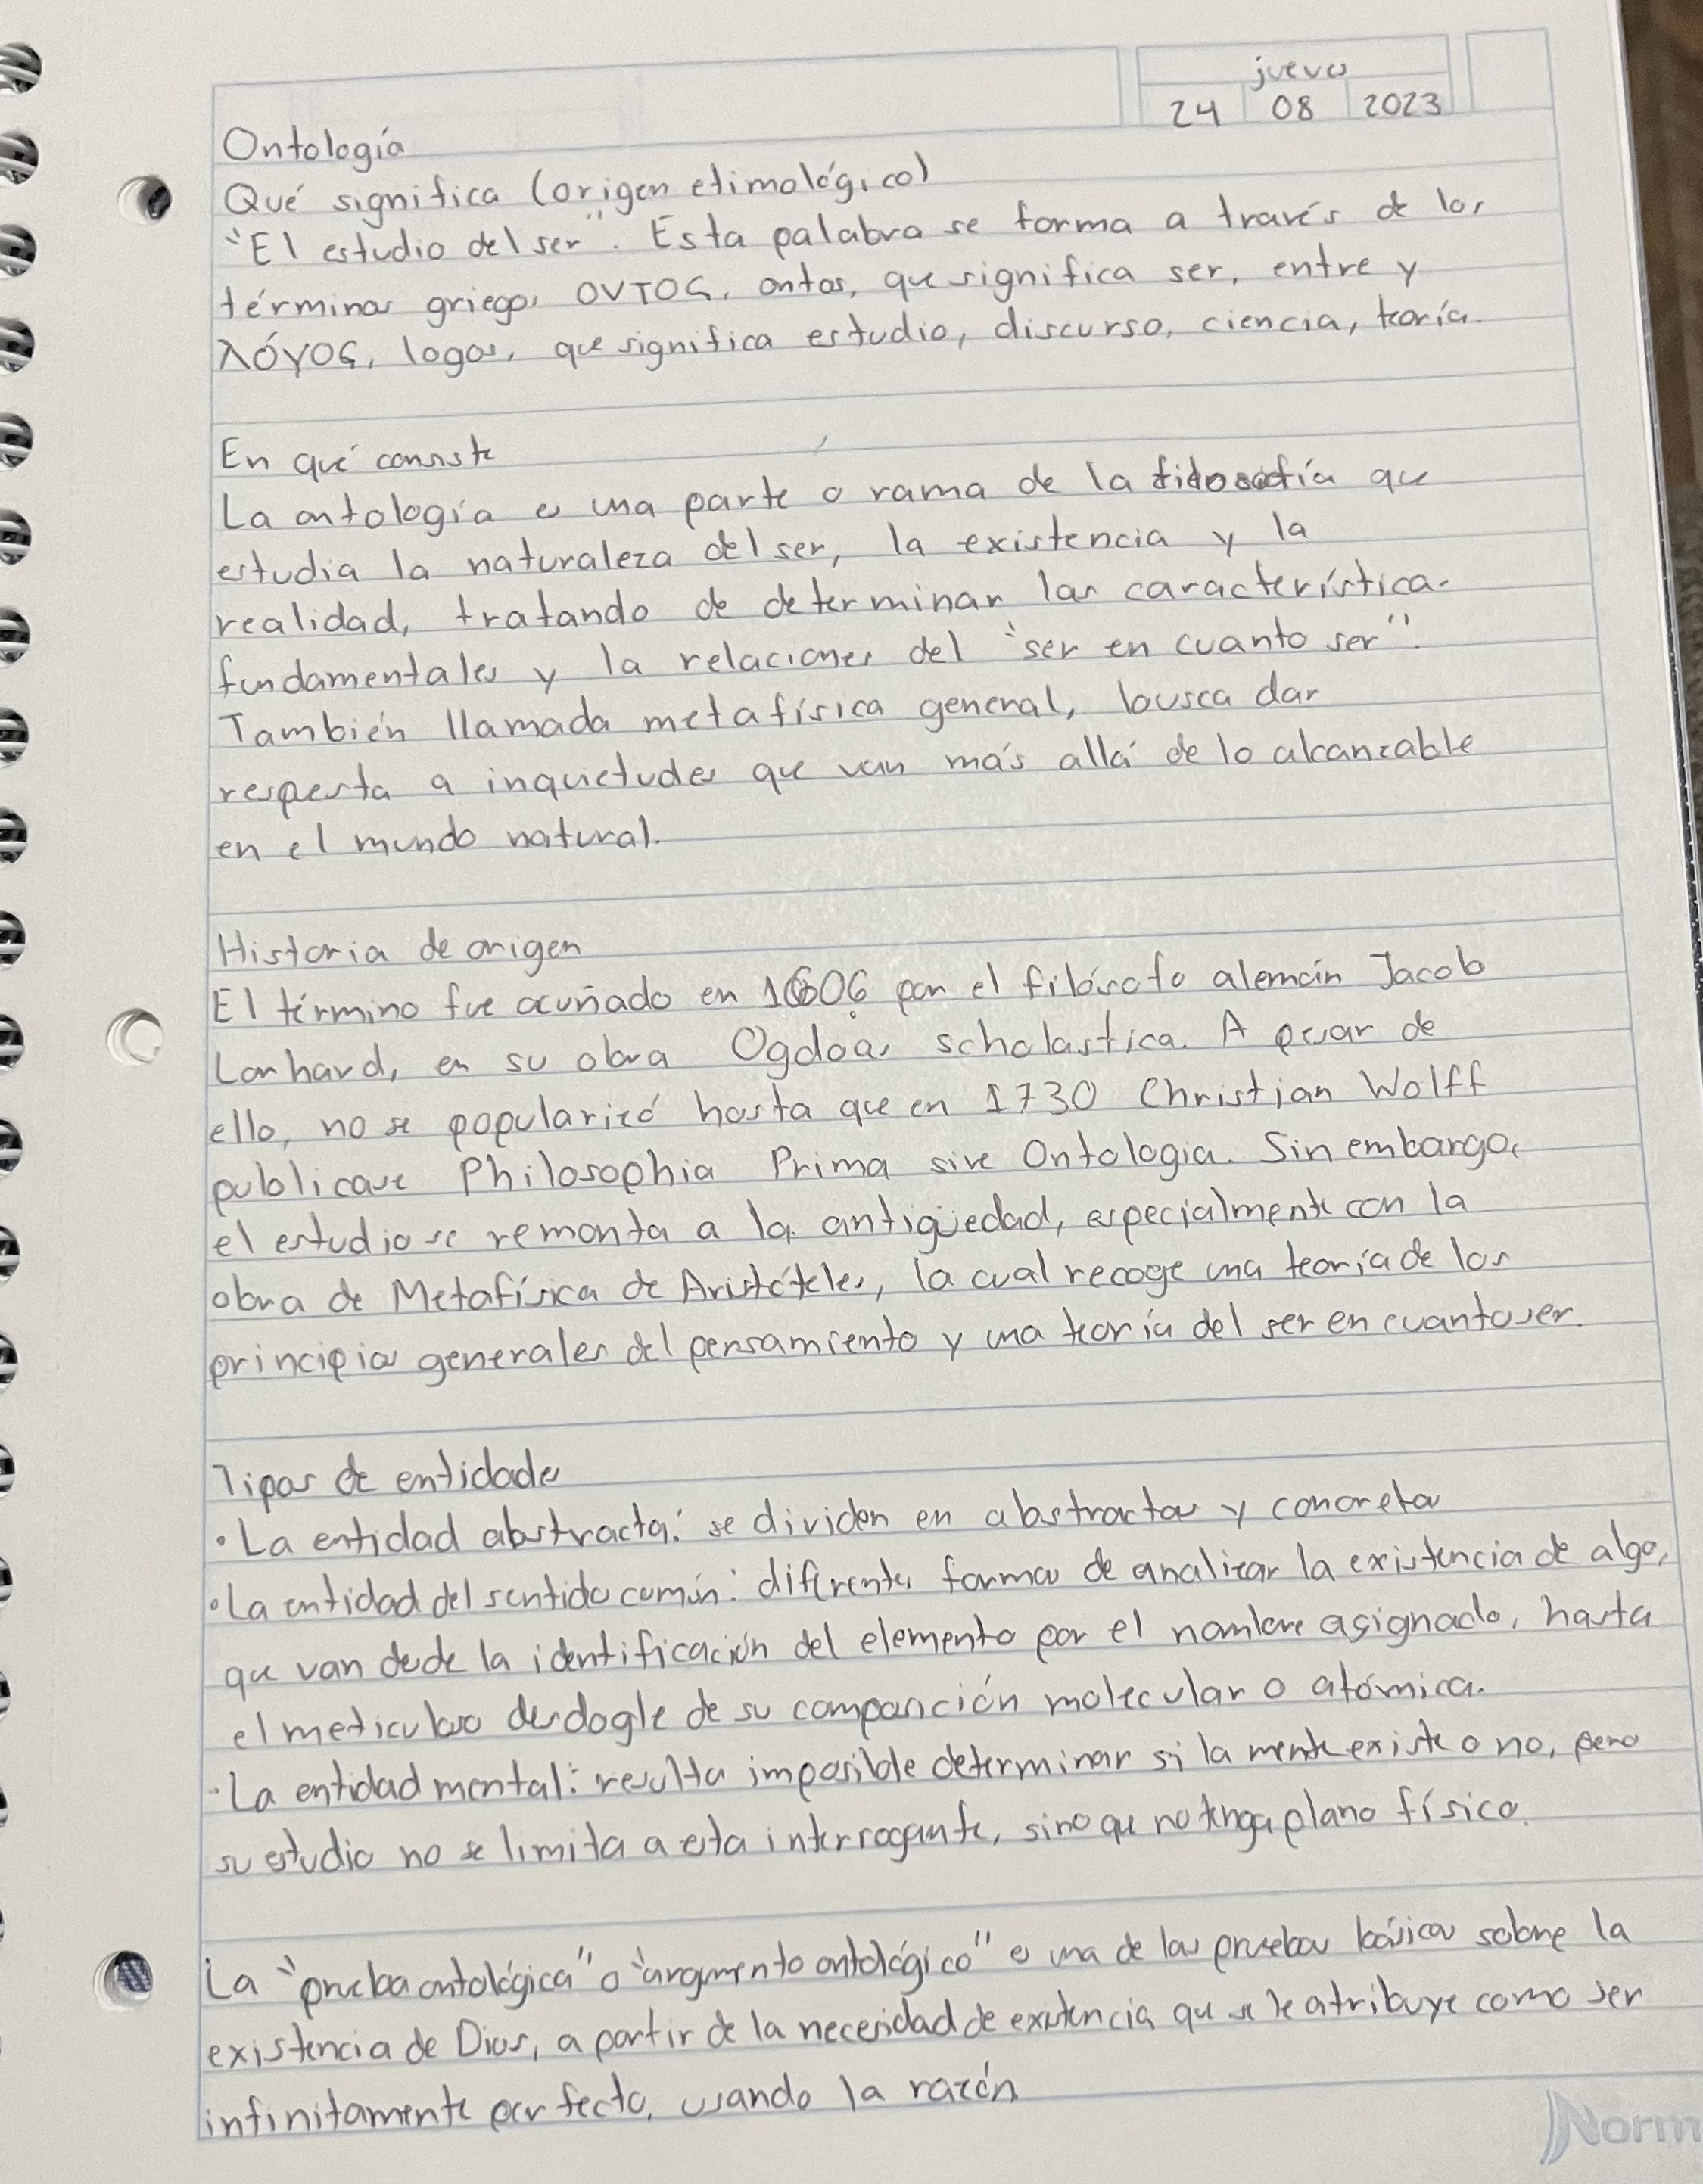 jueves
24 08 2023
Ontología
Qué significa (origen etimológico)
"El estudio del ser". Esta palabra se forma a través de los
términos griegos OVTOS, ontos, que significa ser, entre y
λόγος, logos, que significa estudio, discurso, ciencia, teoría.
En qué consiste
La ontología es una parte o rama de la filosofía que
estudia la naturaleza del ser, la existencia y la
realidad, tratando de determinar las características
fundamentales y la relaciones del "ser en cuanto ser".
También llamada metafísica general, busca dar
respuesta a inquietudes que van más allá de lo alcanzable
en el mundo natural.
Historia de origen
El término fue acuñado en 1606 por el filósofo alemán Jacob
Lorhard, en su obra Ogdoas scholastica. A pesar de
ello, no se popularizó hasta que en 1730 Christian Wolff
publicase Philosophia Prima sive Ontologia. Sin embargo,
el estudio se remonta a la antigüedad, especialmente con la
obra de Metafísica de Aristóteles, la cual recoge una teoría de los
principios generales del pensamiento y una teoría del ser en cuanto ser.
Tipos de entidades
• La entidad abstracta: se dividen en abstractas y concretas
• La entidad del sentido común: diferentes formas de analizar la existencia de algo,
que van desde la identificación del elemento por el nombre asignado, hasta
el meticuloso desdogle de su composición molecular o atómica.
• La entidad mental: resulta imposible determinar si la mente existe o no, pero
su estudio no se limita a esta interrogante, sino que no tenga plano físico.
La "prueba ontológica" o "argumento ontológico" es una de las pruebas básicas sobre la
existencia de Dios, a partir de la necesidad de existencia que se le atribuye como ser
infinitamente perfecto, usando la razón
Norm